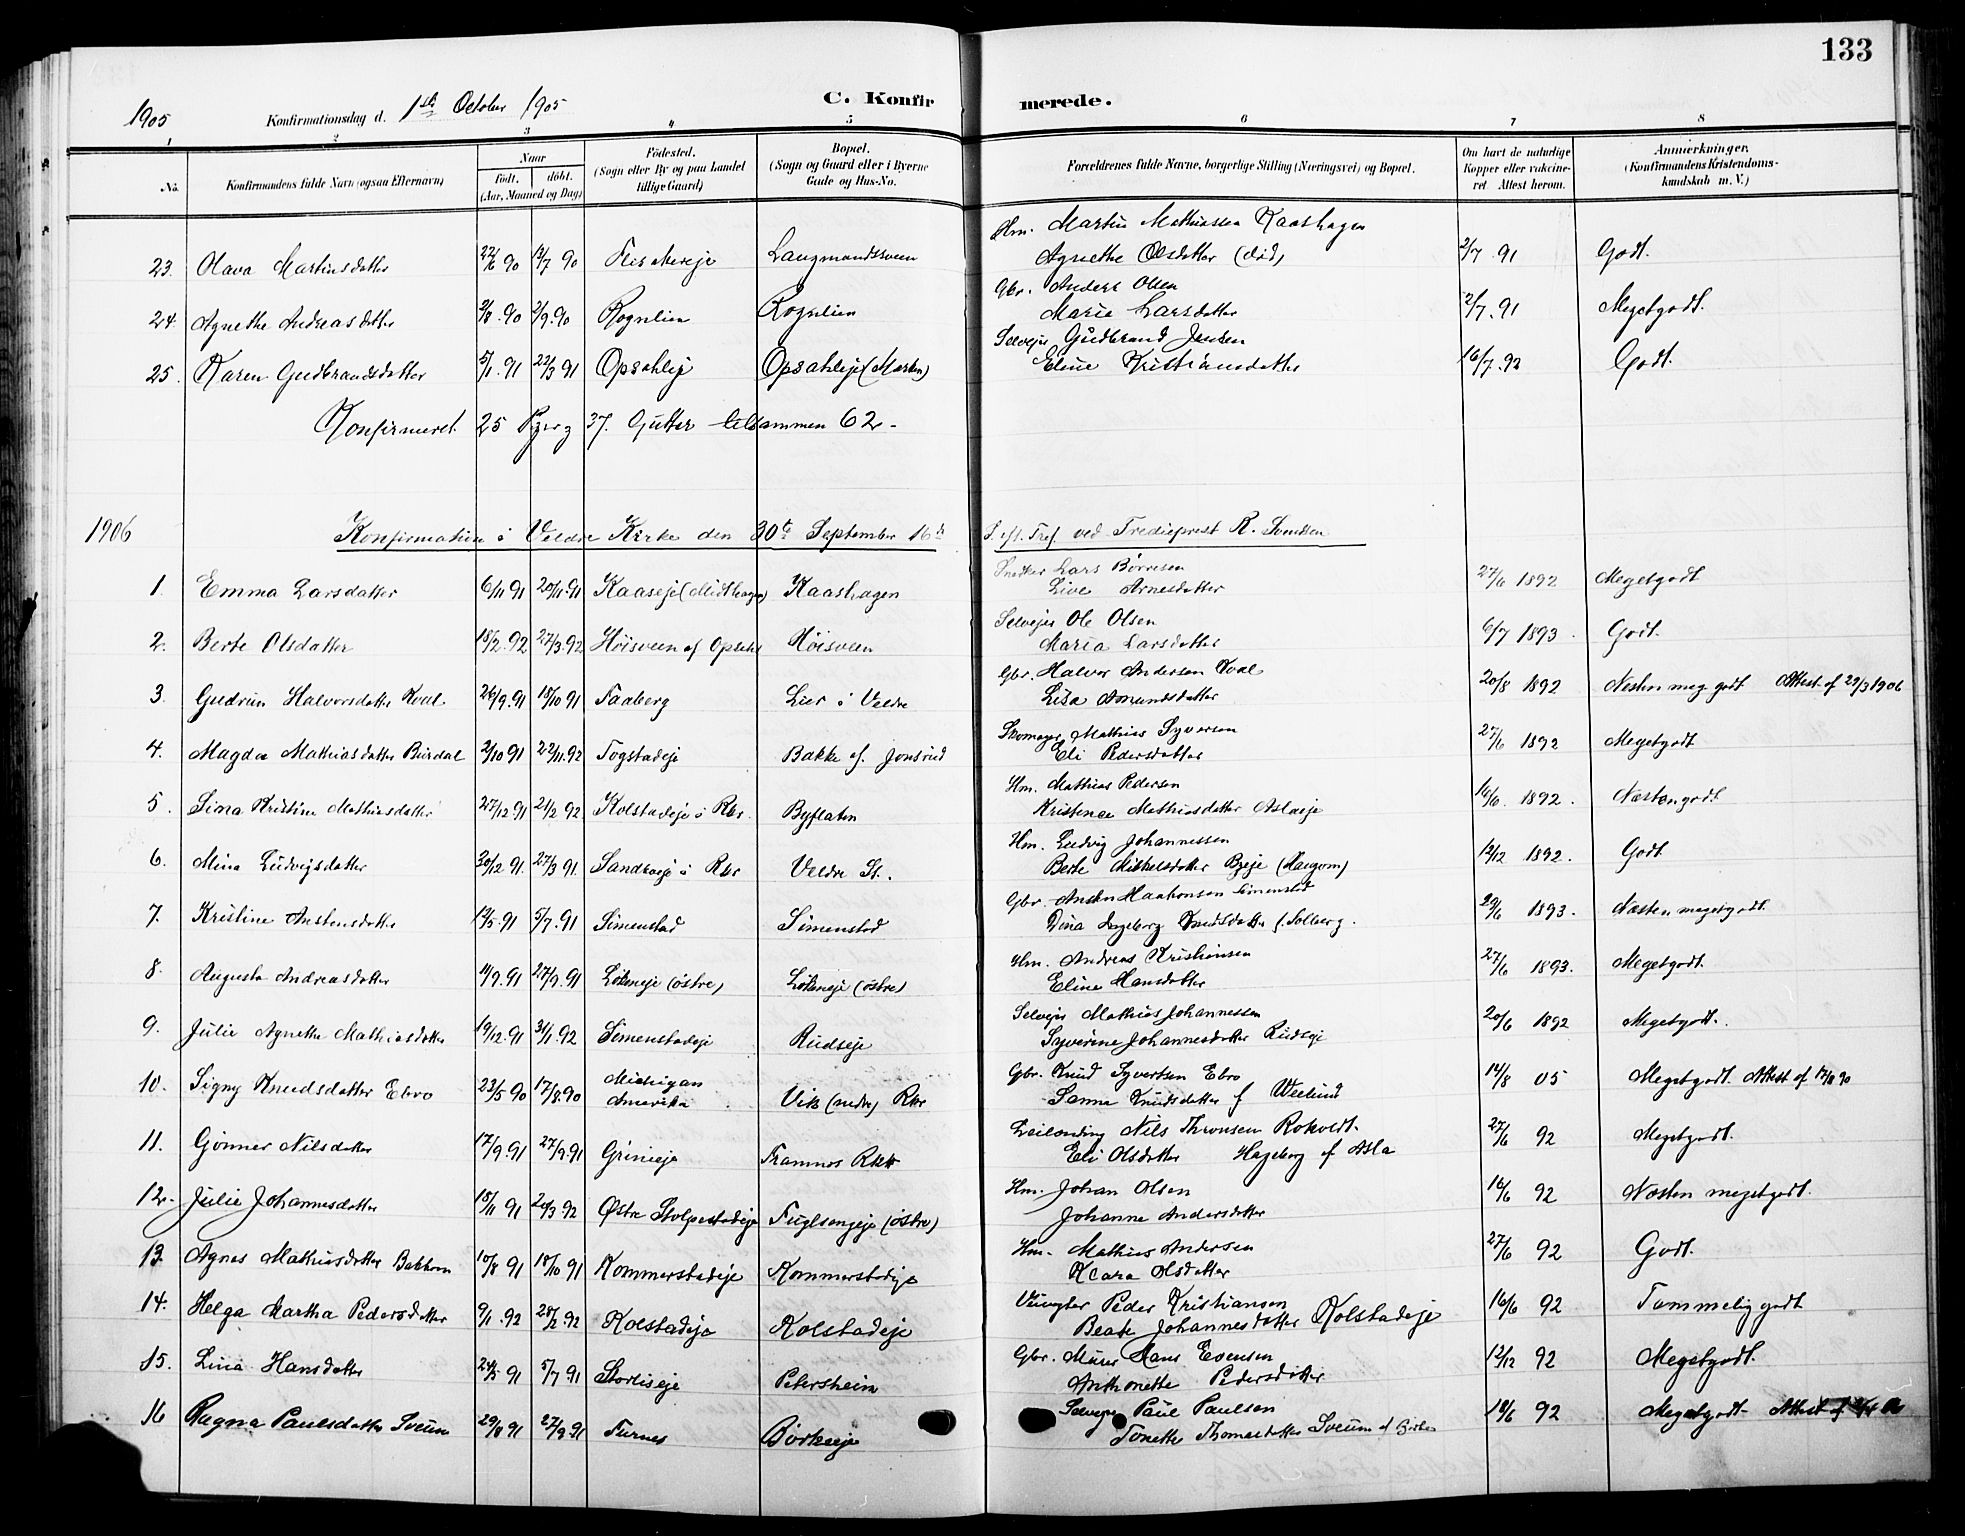 133
1905 Konfirmationsdag d. 1ste October 1905 C. Konfirmerede.
1 2 3 4 5 6 7 8
No. Konfirmandens fulde Navn (ogsaa Efternavn) Naar Født. døbt. (Aar, Maaned og Dag) Fødested. (Sogn eller By og paa Landet tillige Gaard) Bopæl. (Sogn og Gaard eller i Byerne Gade og Hus-No. Forældrenes fulde Navne, borgerlige Stilling (Næringsvei) og Bopæl. Om havt de naturlige Kopper eller vakcineret Attest herom. Anmerkninger. (Konfirmandens Kristendomskundskab m. V.)
Hm. Martin Mathiassen Kaashagen
23. Olava Martinsdatter 22/6 90 13/7 90 Langmandsveen Agnethe Olsdatter (død) 2/7 91 Godt.
Gbr. Anders Olsen
24. Agnethe Andreasdatter 2/8 90 2/9 90 Rognlien Rognlien Marie Larsdatter 2/7 91 Megetgodt.
Selvejer Gudbrand Jensen
25. Karen Gudbrandsdatter 5/1 91 22/3 91 Opsahleje Opsahleje (Marken) Eline Kristiansdatter 16/7 92 Godt.
Konfirmeret 25 Piger og 37 Gutter tilsammen 62
1906 Konfirmation i Veldre Kirke den 30te September 16de S. eft. Tref. ved Trediepræst R. Svendsen
Snedker Lars Børresen
1. Emma Larsdatter 6/11 91 20/11 91 Kaaseje (Midthagen) Kaashagen Live Arnesdatter 27/6 1892 Megetgodt
Selvejer Ole Olsen
2. Berte Olsdatter 18/2 92 27/3 92 Høisveen af Opsahl Høisveen Maria Larsdatter 6/7 1893 Godt.
Gbr. Halvor Andersen Kval
3 Gudrun Halvorsdatter Kval 26/9 91 18/10 91 Faaberg Lier i Veldre Lisa Amundsdatter 20/8 1892 Nesten meg. godt Attest af 29/3 1906
Skomager Mathias Syversen
4. Magda Mathiasdatter Burdal 2/10 91 22/11 92 Fogstadeje Bakke af Jonsrud Eli Pedersdatter 27/6 1892 Megetgodt
Hm. Mathias Pedersen
5. Sina Kristine Mathiasdatter 27/12 91 21/2 92 Kolstadeje i Rbr. Byflaten Kristence Mathiasdatter Aslaeje 16/6 1892. Næstengodt
Hm. Ludvig Johannessen
6. Mina Ludvigsdatter 30/12 91 27/3 91 Veldre St. Berte Mikkelsdatter Byeje (Haugom) 12/12 1892. Godt
Gbr. Ansten Haakonsen Simenstad
7. Kristine Anstensdatter 12/5 91 5/7 91 Simenstad Simenstad Dina Ingeborg Knudsdatter f. Solberg. 29/6 1893. Næsten megetgodt.
Hm. Andreas Kristiansen
8. Augusta Andreasdatter 11/9 91 27/9 91 Løkeneje (østre) Løkeneje (østre) Eline Hansdatter 27/6 1893. Megetgodt.
Selvejer Mathias Johannessen
9. Julie Agnethe Mathiasdatter 19/12 91 31/1 92 Simenstadeje Rudseje Syverine Johannesdatter Rudseje 20/6 1892 Megetgodt.
Gbr. Knud Syvertsen Ebro
10. Signy Knudsdatter Ebro 23/5 90 17/8 90 Michigan Amerika Vik (nedre) Rbr Sanna Knudsdatter f 14/8 05 Megetgodt. Attest af 17/8 90
Leilending Nils Thronsen Rokvelt.
11. Gønner Nilsdatter 17/9 91 27/9 91 Grinieje Framnes Rbr Eli Olsdatter Hageberg af Asla 27/6 92 Megetgodt.
Hm. Johan Olsen
12. Julie Johannesdatter 18/11 91 20/3 92 Østre Stolpestadeje Fuglsengeje (østre) Johanne Andersdatter 16/6 92 Næsten megetgodt.
Hm. Mathias Andersen
13. Agnes Mathiasdatter Bakken 10/8 91 18/10 91 Kommerstadeje Kommerstadeje Klara Olsdatter 27/6 92 Godt.
Peder Kristiansen
14. Helga Martha Pedersdatter 9/1 92 28/2 92 Kolstadeje Kolstadeje Beate Johannesdatter Kolstadeje 16/6 92 Temmelig godt
Gbr. Murer Hans Evensen
15. Lina Hansdatter 24/5 91 5/7 91 Storlieeje Petersheim Anthonette Pedersdatter 12/12 92 Megetgodt.
Selvejer Paul Paulsen
16 Ragna Paulsdatter Sveum 29/8 91 27/9 91 Furnes Børkeeje Tonette Thomasdatter Sveum 18/6 92 Megetgodt Attest